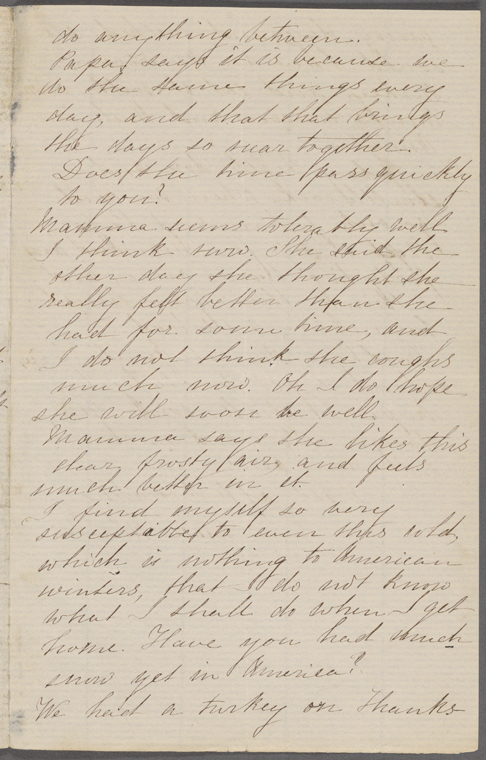 do anything between.
Papa, says it is because we
do the same things every
day, and that that brings
the days so near together.
Does the time pass quickly
to you?
Mamma seems tolerably well
I think now. She said the
other day she thought she
really felt better than she
had for some time, and
I do not think she coughs
much now. Oh I do hope
she will soon be well.
Mamma says she likes this
clear, frosty air, and feels
much better in it.
I find myself so very
susceptible to even this cold,
which is nothing to American
winters, that I do not know
what I shall do when I get
home. Have you had much
snow yet in America?
We had a turkey on Thanks-